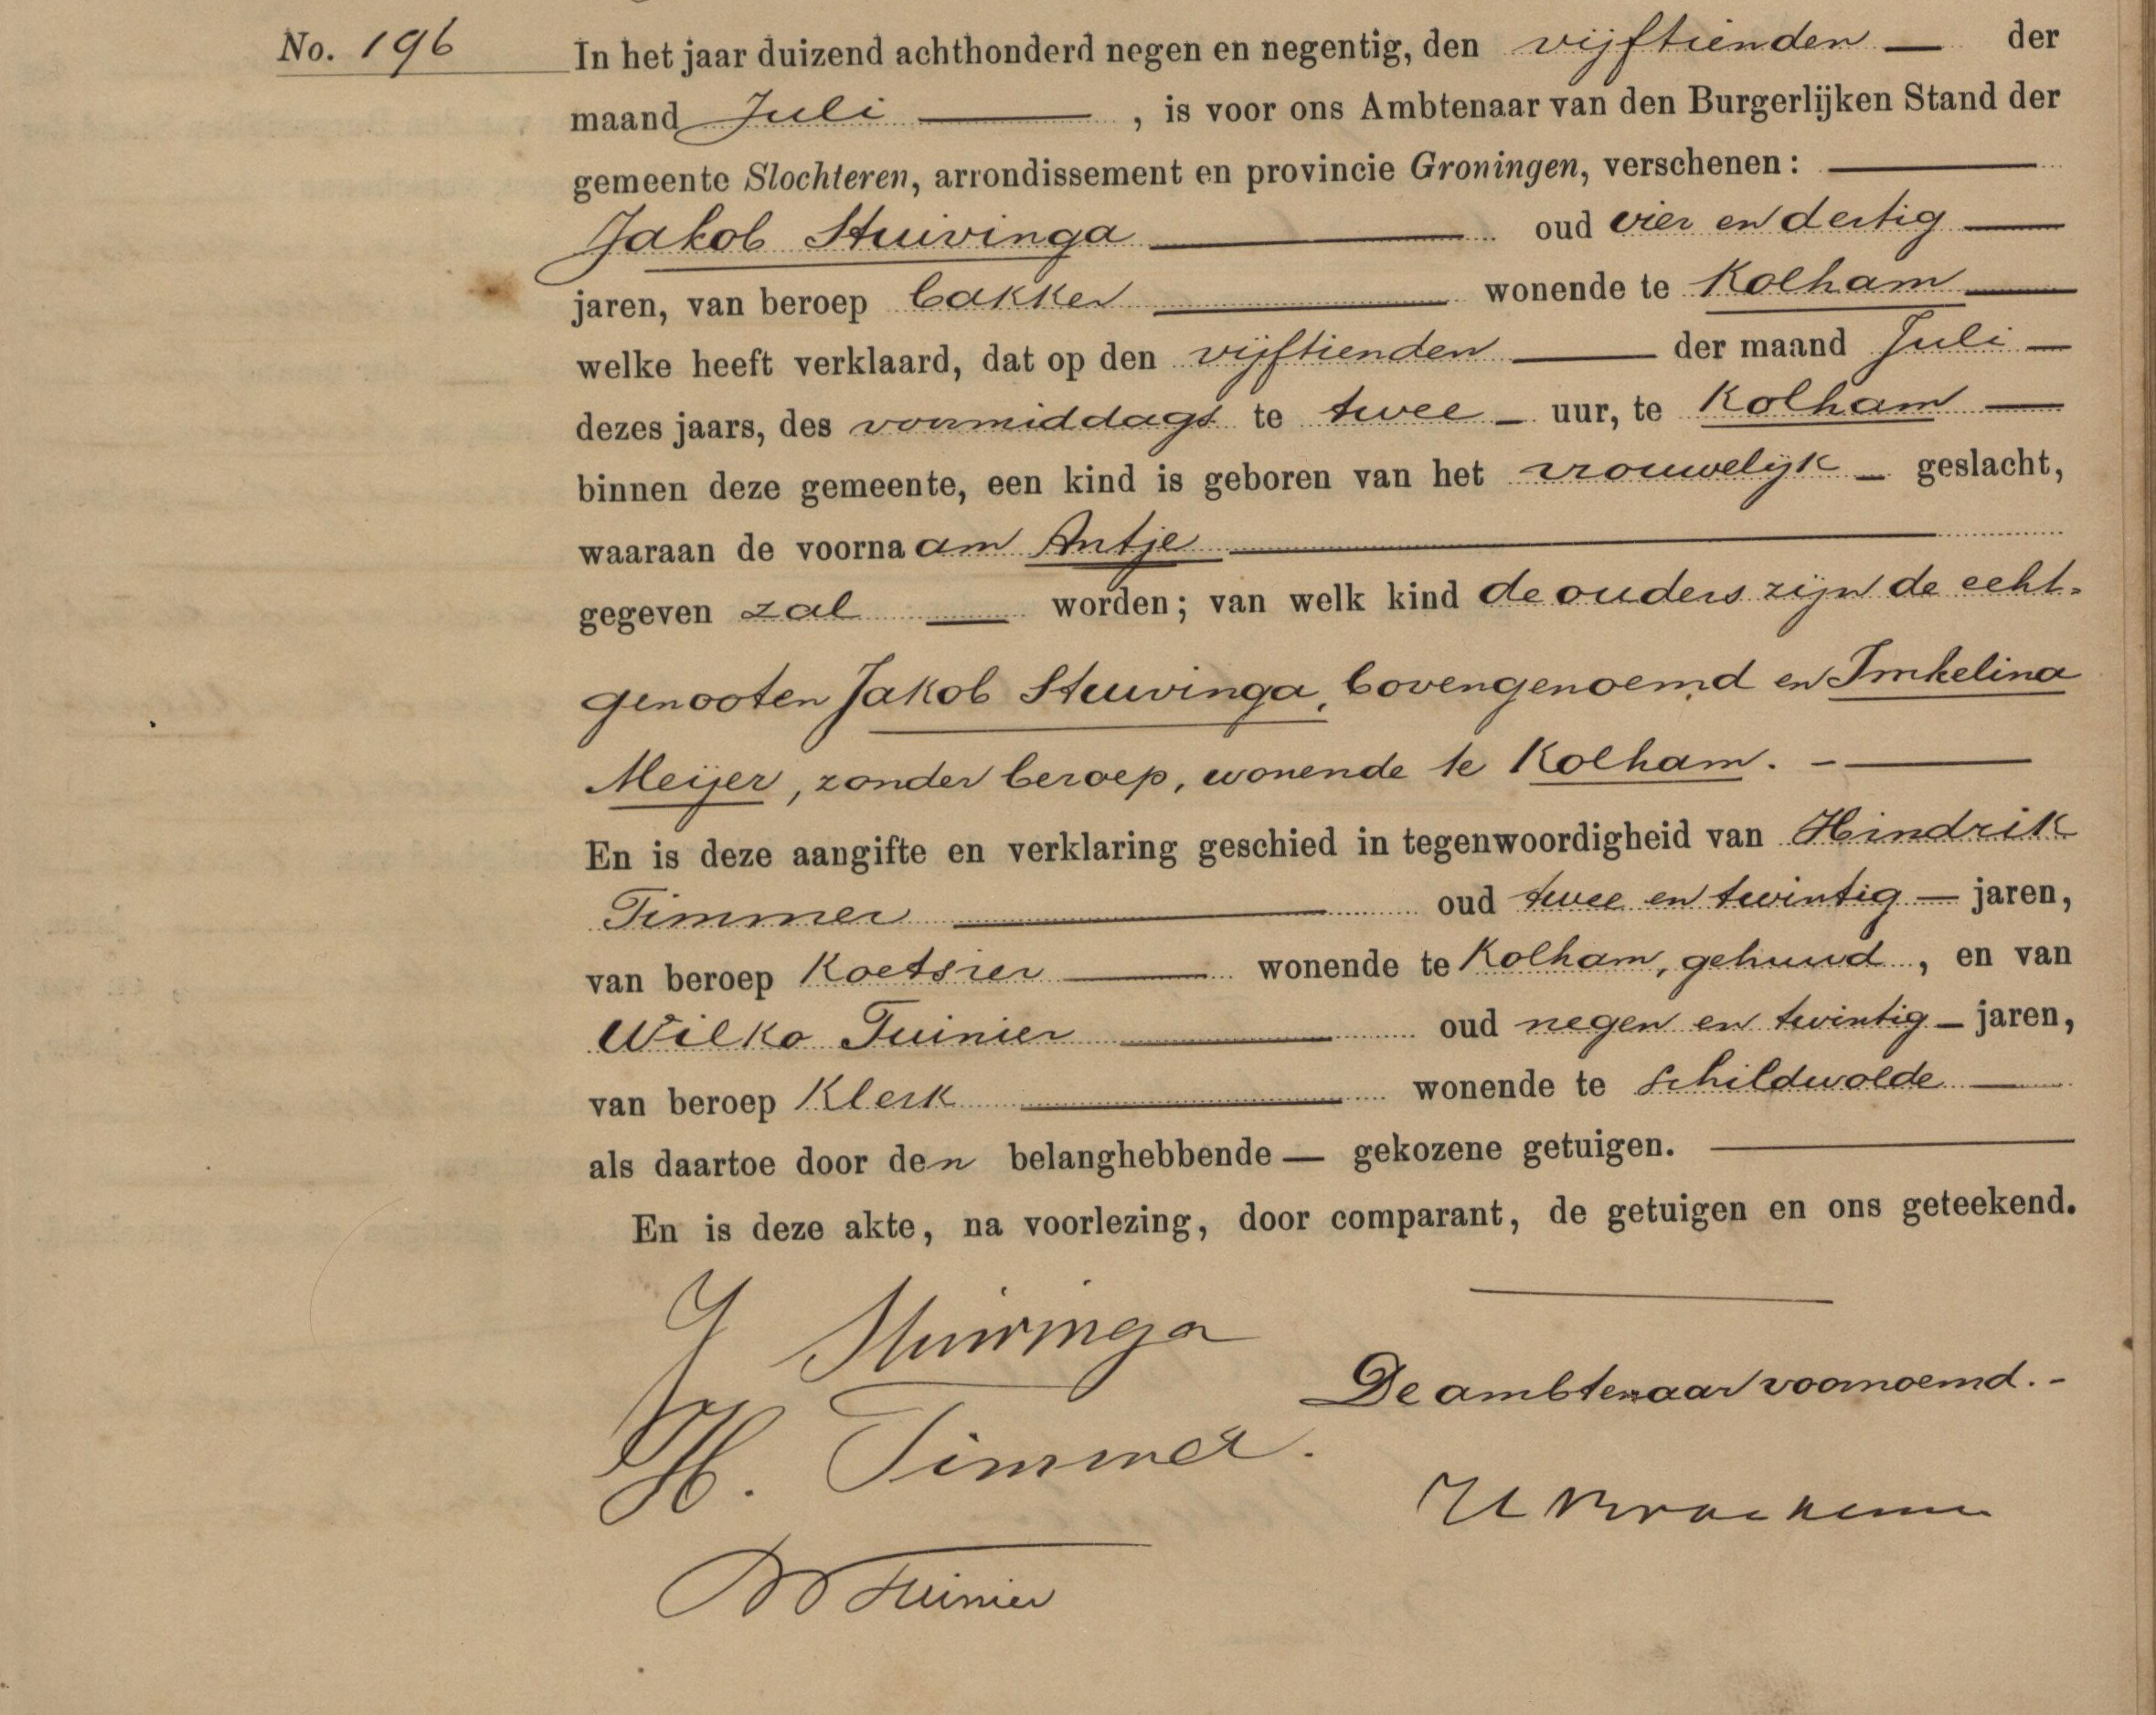 No. 196
In het jaar duizend achthonderd negen en negentig, den vijftienden — der
maand Juli —, is voor ons Ambtenaar van den Burgerlijken Stand der
gemeente Slochteren, arrondissement en provincie Groningen, verschenen: —
Jakob Stuivinga — oud vier en dertig —
jaren, van beroep bakker — wonende te Kolham —
welke heeft verklaard, dat op den vijftienden — der maand Juli —
dezes jaars, des voormiddags te twee — uur, te Kolham —
binnen deze gemeente, een kind is geboren van het vrouwelijk — geslacht,
waaraan de voornaam Antje —
gegeven zal — worden; van welk kind de ouders zijn de echt-
genooten Jakob Stuivinga, bovengenoemd en Imkelina
Meijer, zonder beroep, wonende te Kolham. —
En is deze aangifte en verklaring geschied in tegenwoordigheid van Hindrik
Timmer — oud twee en twintig — jaren,
van beroep Koetsier — wonende te Kolham, gehuwd, en van
Wilko Tuinier — oud negen en twintig — jaren,
van beroep Klerk — wonende te Schildwolde —
als daartoe door den belanghebbende — gekozene getuigen. —
En is deze akte, na voorlezing, door comparant, de getuigen en ons geteekend.
J Stuivinga
De ambtenaar voornoemd. -
H. Timmer.
W Tuinier